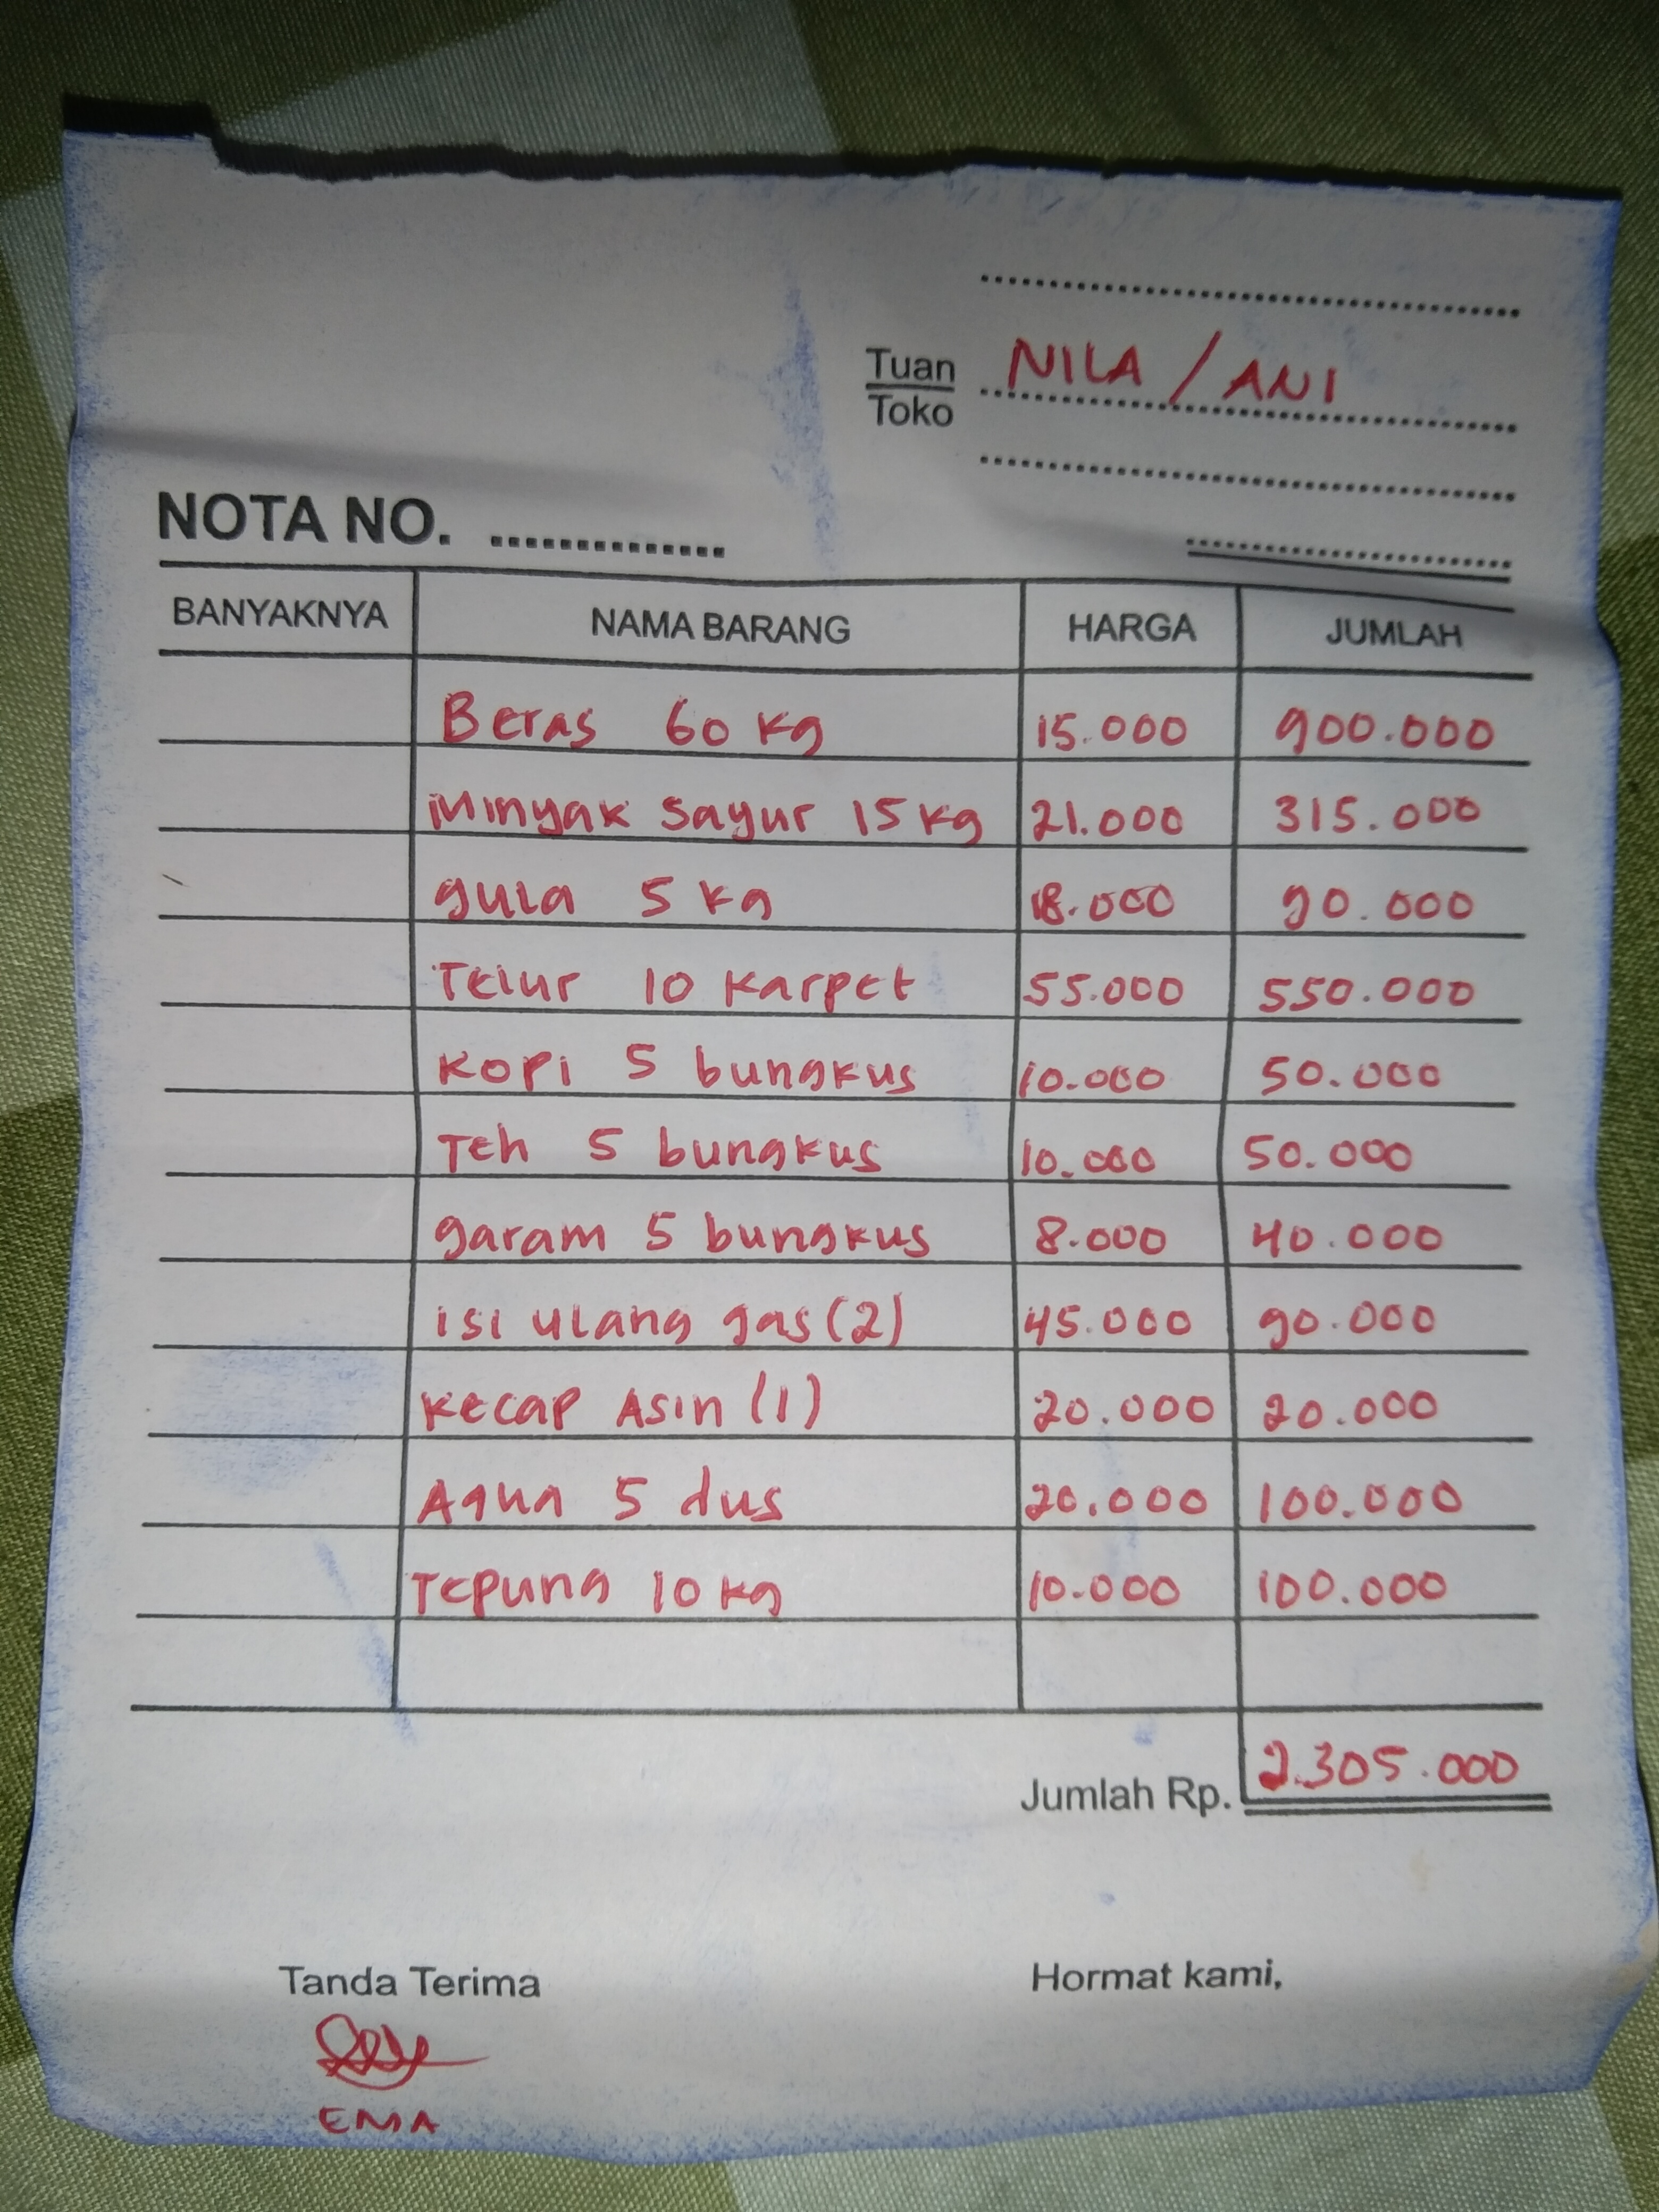 Tuan NILA / ANI
Toko
NOTA NO.
BANYAKNYA NAMA BARANG HARGA JUMLAH
Beras 60 kg 15.000 900.000
Minyak sayur 15 kg 21.000 315.000
gula 5 kg 18.000 90.000
Telur 10 karpet 55.000 550.000
Kopi 5 bungkus 10.000 50.000
Teh 5 bungkus 10.000 50.000
garam 5 bungkus 8.000 40.000
isi ulang gas (2) 45.000 90.000
Kecap Asin (1) 20.000 20.000
Aqua 5 dus 20.000 100.000
Tepung 10 kg 10.000 100.000
Jumlah Rp. 2.305.000
Tanda Terima Hormat kami,
EMA